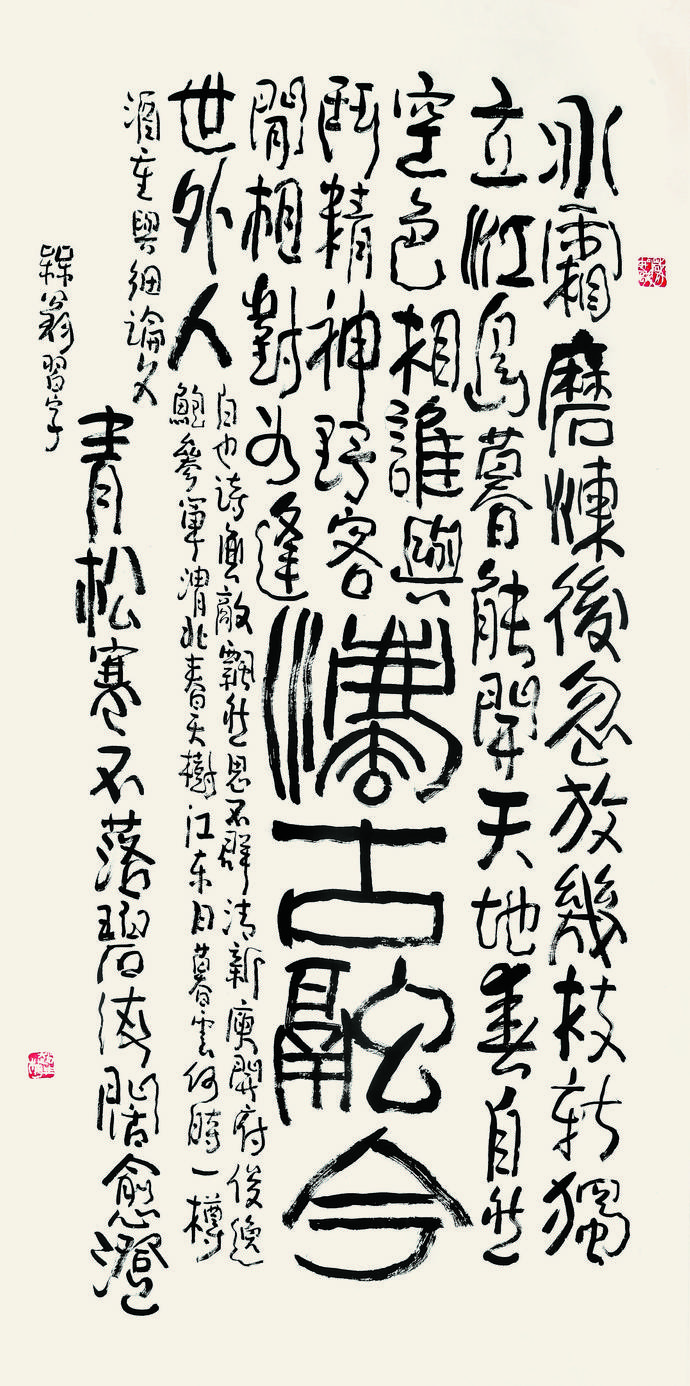 氷霜磨煉後忽放幾枝新獨
立江島暮能開天地春自然
空色相誰與
鬥精神野客
閒相對如逢
世外人
古融今
白也詩無敵飄然思不群清新庾開府俊逸
鮑參軍渭北春天樹江東日暮雲何時一樽
酒重與細論文
青松寒不落碧海闊愈澄
槑翁習字